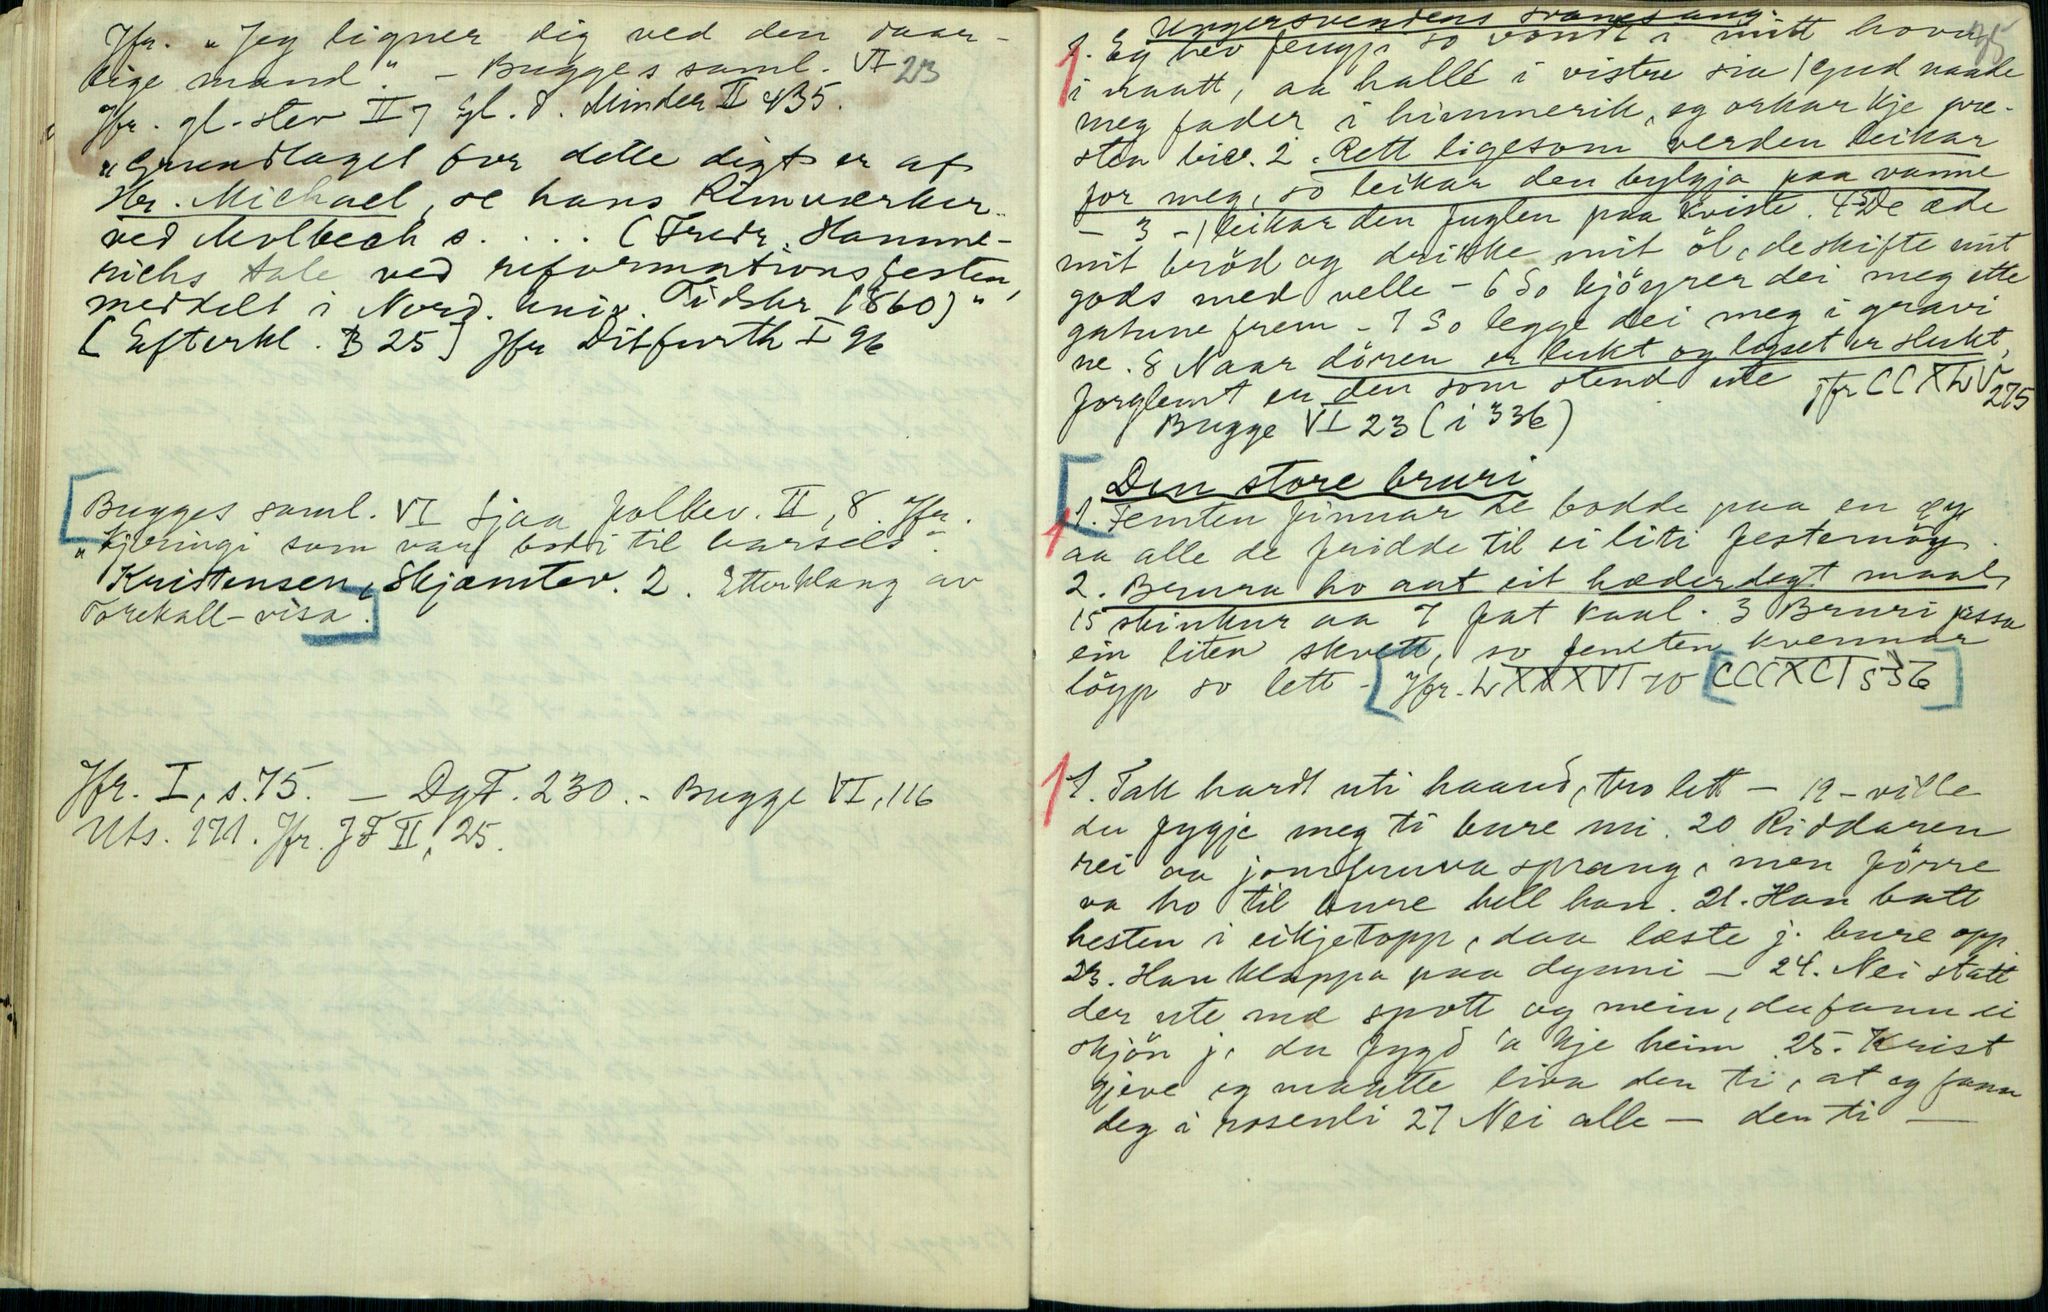 Jfr. "Jeg ligner dig ved den daar-
lige mand." - Bugges saml. VI 23
Jfr. gl. stev II 7 Gl. d. Minder II 435.
"Grundlaget for dette digt er af
Hr. Michael, se hans Rimværker
ved Molbech s. . . . (Fredr. Hamme-
richs tale ved reformationsfesten,
meddelt i Nord. univ. Tidskr. 1860)"
[Efterkl. B 25] Jfr Ditfurth I 96
[Bugges saml. VI Sjaa folkev. II, 8. Jfr.
"Kjeringi som var bodi til barsels".
Kristensen, Skjæmtev. 2. Etterklang av
Torekall-visa.]
Jfr. I, s. 75. - DgF. 230. - Bugge VI, 116
Uts. 171. Jfr. JF II, 25.
75
Ungersvendens svanesang.
1. Eg hev fengje so vondt i mitt hovu
i naatt, aa halle i vistre sia / Gud naade
meg fader i himmerik, eg orkar kje pre-
sten bie. 2. Rett ligesom verden leikar
for meg, so leikar den bylgja paa vanne
- 3 - / leikar den fuglen paa kviste. 4 De æde
mit bröd og drikke mit öl, de skifte mit
gods med velle - 6 So kjöyrer dei meg ette
gatune frem - 7 So legge dei meg i gravi
ne. 8 Naar dören er lukt og lyset er slukt,
forglemt er den som stend ute Jfr CCXLV 275
Bugge VI 23 (i 336)
[Den store bruri
1. Femten finnar de bodde paa en öy
aa alle de fridde til ei liti festermöy.
2. Brura ho aat eit hæderlegt maal,
15 skinkur aa 7 fat kaal. 3 Bruri pissa
ein liten skvett, so femten kvennar
löyp so lett - [Jfr. LXXXVI 70 [CCCXCI 536]
1. Tak hardt uti haand, tro lett - 19 - ville
du fygje meg ti bure mi. 20 Riddaren
rei aa jomfruva sprang, men förre
va ho til bure hell han. 21. Han batt
hesten i eikjetopp, daa læste j. bure opp
23. Han klappa paa dynni - 24. Nei statt
der ute md spott og mein, du fann ei
skjön j. du fygd 'a kje heim 25. Krist
gjeve eg maatte liva den ti, at eg fann
deg i rosenli 27 Nei alle - den ti -